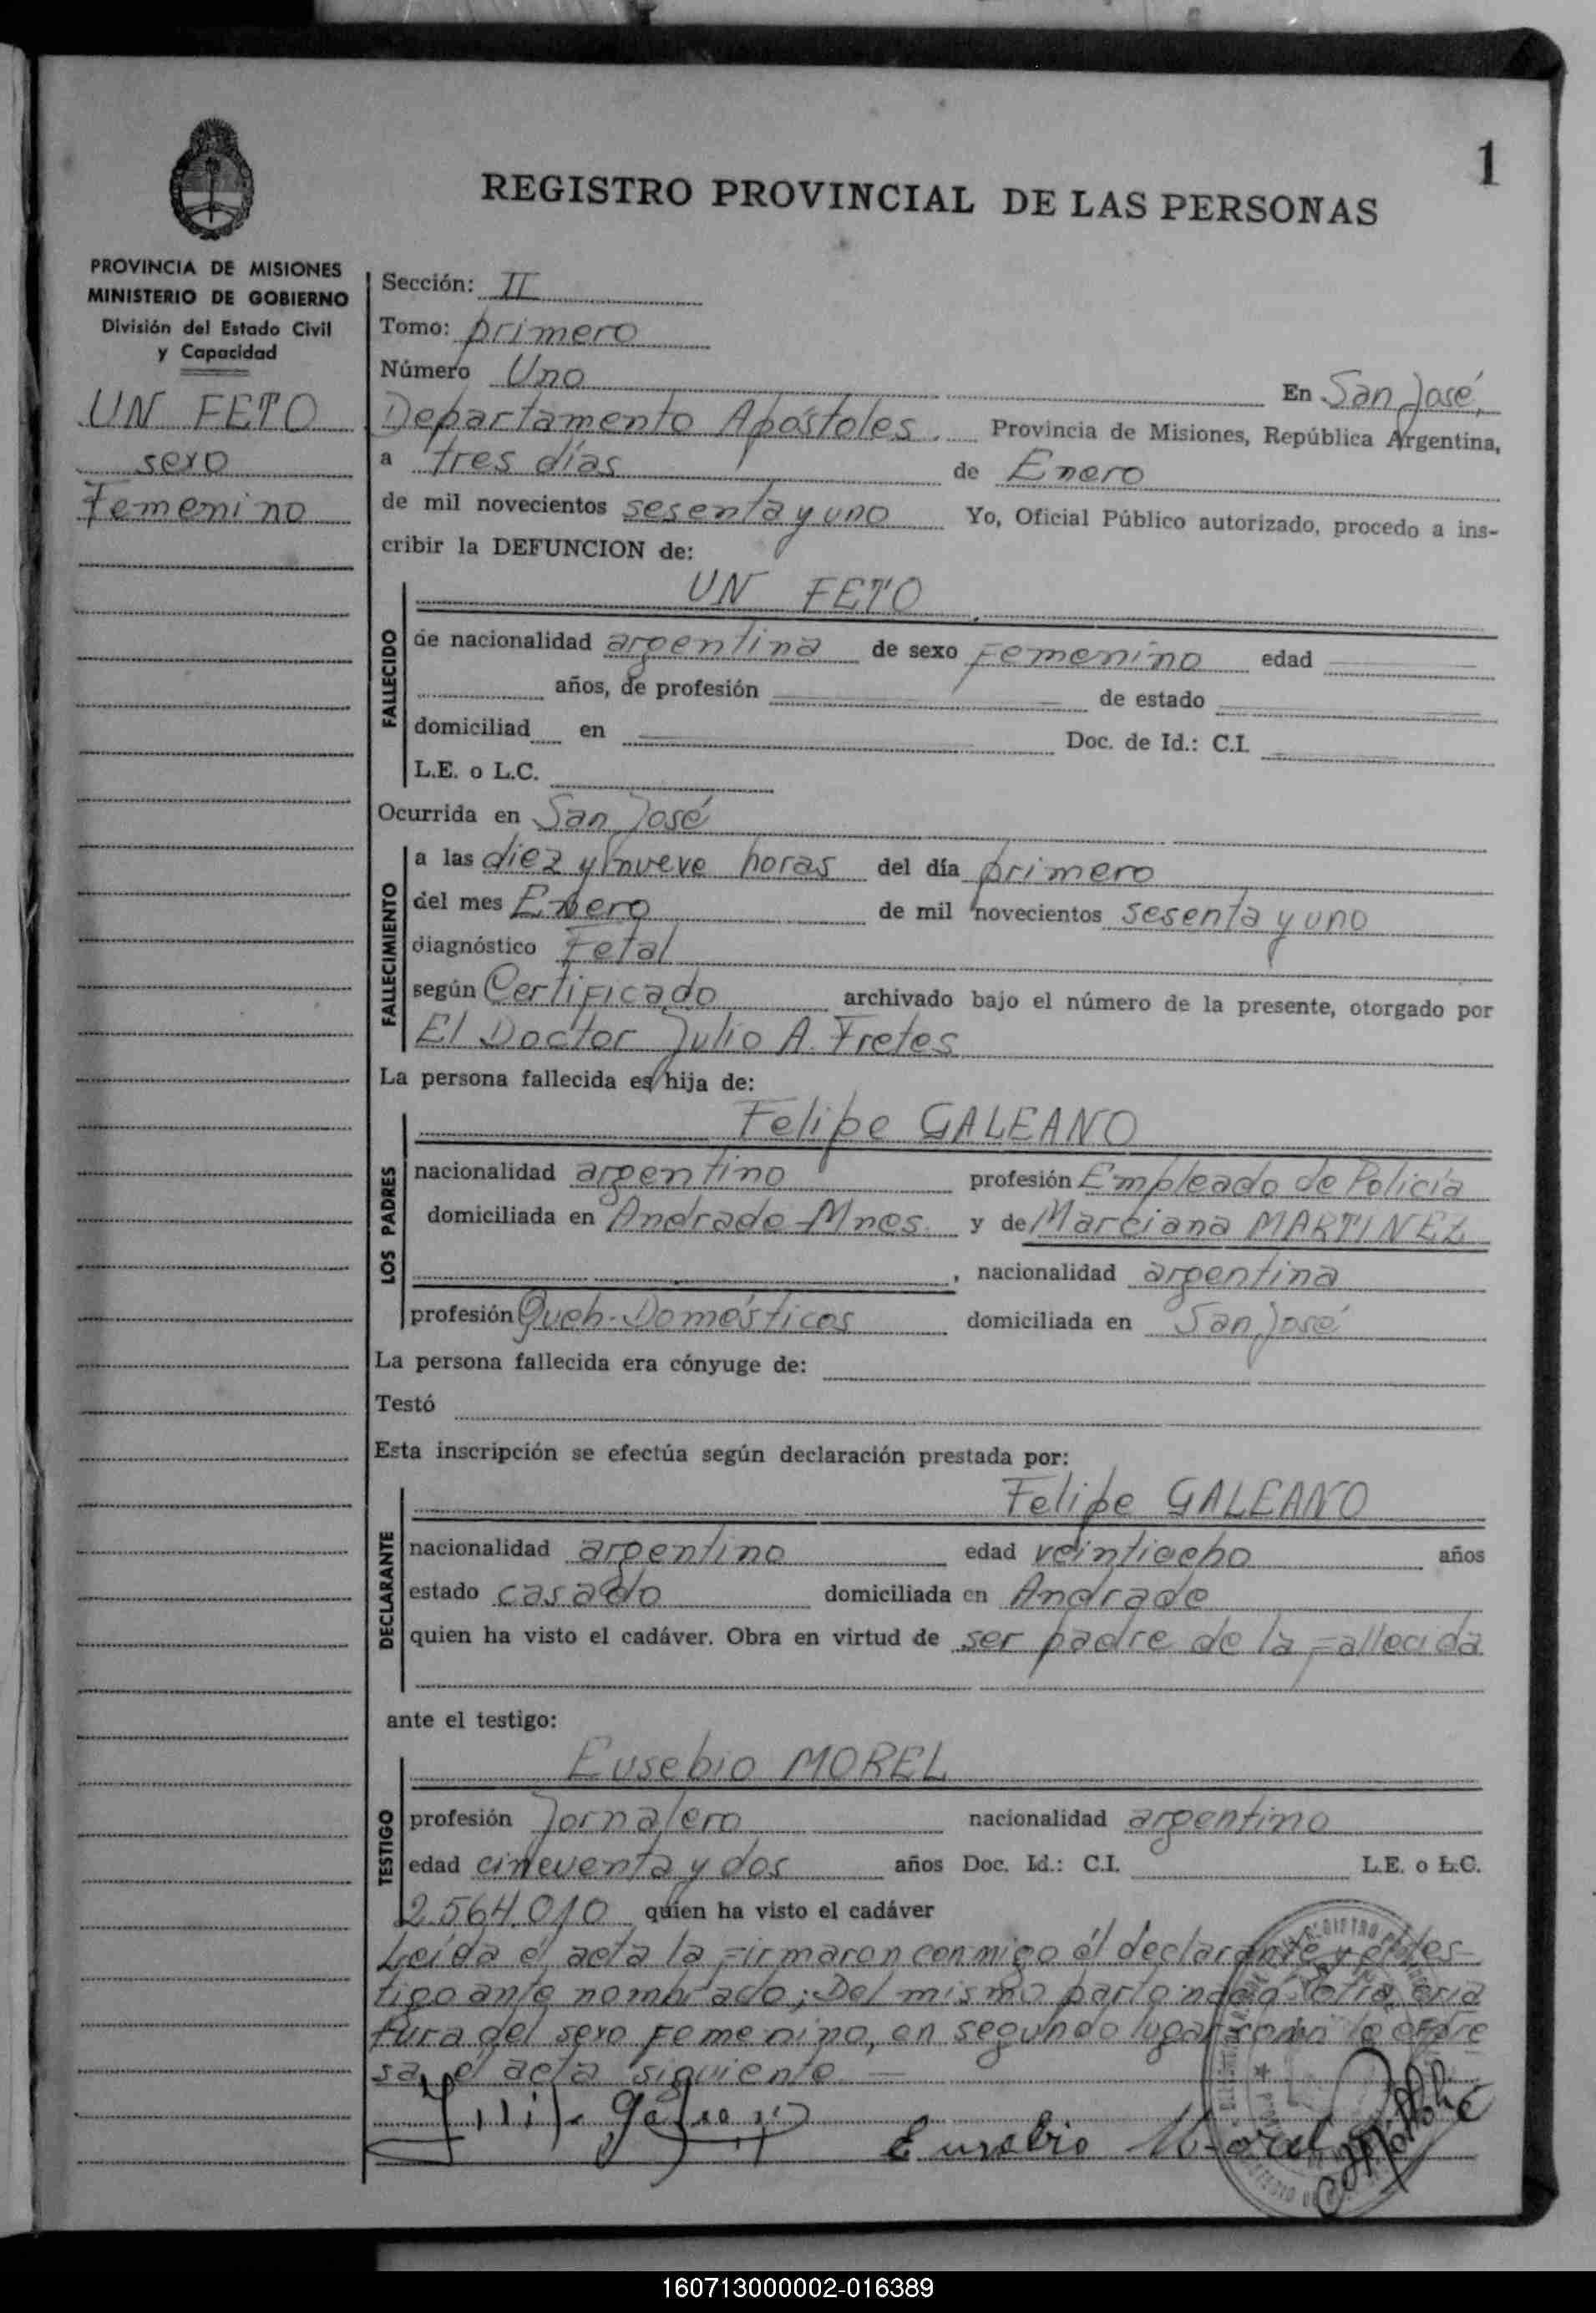 1
REGISTRO PROVINCIAL DE LAS PERSONAS
PROVINCIA DE MISIONES
MINISTERIO DE GOBIERNO
División del Estado Civil
y Capacidad
UN FETO
sexo
Femenino
Sección: II
Tomo: primero
Número Uno En San José,
Departamento Apóstoles. Provincia de Misiones, República Argentina,
a tres días de Enero
de mil novecientos sesenta y uno Yo, Oficial Público autorizado, procedo a ins-
cribir la DEFUNCION de:
UN FETO
FALLECIDO
de nacionalidad argentina de sexo Femenino edad
años, de profesión de estado
domiciliad en Doc. de Id.: C.I.
L.E. o L.C.
Ocurrida en San José
FALLECIMIENTO
a las diez y nueve horas del día primero
del mes Enero de mil novecientos sesenta y uno
diagnóstico Fetal
según Certificado archivado bajo el número de la presente, otorgado por
El Doctor Julio A. Fretes
La persona fallecida es hija de:
LOS PADRES
Felipe GALEANO
nacionalidad argentino profesión Empleado de Policía
domiciliada en Andrade-Mnes. y de Marciana MARTINEZ
, nacionalidad argentina
profesión Queh-Domésticos domiciliada en San José
La persona fallecida era cónyuge de:
Testó
Esta inscripción se efectúa según declaración prestada por:
DECLARANTE
Felipe GALEANO
nacionalidad argentino edad veintiocho años
estado casado domiciliada en Andrade
quien ha visto el cadáver. Obra en virtud de ser padre de la fallecida
ante el testigo:
TESTIGO
Eusebio MOREL
profesión Jornalero nacionalidad argentino
edad cincuenta y dos años Doc. Id.: C.I. L.E. o L.C.
2.564.010 quien ha visto el cadáver
Leída el acta la firmaron conmigo el declarante y el tes-
tigo ante nombrado; Del mismo parto otra cria
tura del sexo Femenino, en segundo lugar como lo expre
sa el acta siguiente.—
Eusebio Morel
160713000002-016389